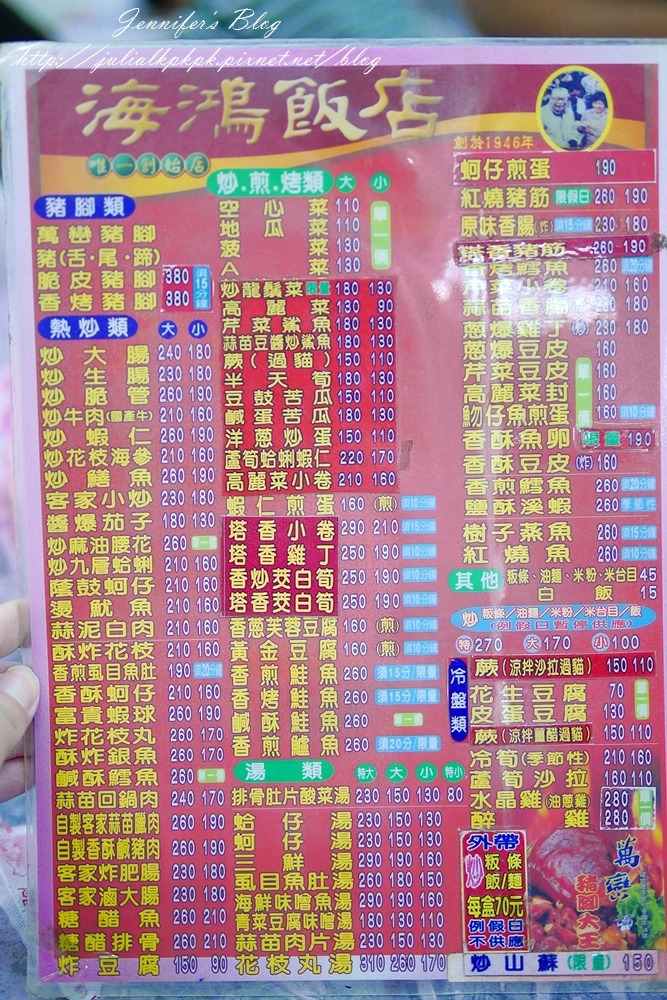 Jennifer's Blog
http://julialkpkpk.pixnet.net/blog
海鴻飯店
創於1946年
唯一創始店
豬腳類
萬巒豬腳
豬(舌·尾·蹄)
脆皮豬腳 380 須15分鐘
香烤豬腳 380
熱炒類 大 小
炒大腸 240 180
炒生腸 230 180
炒脆管 260 190
炒牛肉(國產牛) 210 160
炒蝦仁 260 190
炒花枝海參 210 160
炒鱔魚 260 190
客家小炒 230 180
醬爆茄子 180 130
炒麻油腰花 260 單一價
炒九層蛤蜊 210 160
蔭鼓蚵仔 210 160
燙魷魚 210 160
蒜泥白肉 210 160
酥炸花枝 210 160
香煎虱目魚肚 190 須20分鐘
香酥蚵仔 210 160
富貴蝦球 260 190
炸花枝丸 260 170
酥炸銀魚 210 160
鹹酥鱈魚 260 單一價
蒜苗回鍋肉 240 170
自製客家蒜苗臘肉 260 190
自製香酥鹹豬肉 260 190
客家炸肥腸 230 180
客家滷大腸 230 180
糖醋魚 260 210
糖醋排骨 260 210
炸豆腐 150 90
炒.煎.烤類 大 小
空心菜 110
地瓜菜 110
菠菜 130
A菜 130
單一價
炒龍鬚菜 限量 180 130
高麗菜 130 90
芹菜鯊魚 180 130
蒜苗豆醬炒鯊魚 180 130
蕨(過貓) 150 110
半天筍 180 130
豆鼓苦瓜 150 110
鹹蛋苦瓜 180 130
洋蔥炒蛋 150 110
蘆筍蛤蜊蝦仁 220 170
高麗菜小卷 210 160
蝦仁煎蛋 160 (煎) 須10分鐘
塔香小卷 290 210 須15分鐘
塔香雞丁 250 190 須10分鐘
香炒茭白筍 250 190 須10分鐘
塔香茭白筍 250 190 須10分鐘
香蔥芙蓉豆腐 160 (煎) 須10分鐘
黃金豆腐 160 (煎) 須10分鐘
香煎鮭魚 260 須15分/限量
香烤鮭魚 260 須15分/限量
鹹酥鮭魚 260 單一價
香煎鱸魚 260 須20分/限量
湯類 特大 大 小 特小
排骨肚片酸菜湯 230 150 130 80
蛤仔湯 230 150 130
蚵仔湯 230 150 130
三鮮湯 290 190 160
虱目魚肚湯 260 180 150
海鮮味噌魚湯 290 190 160
青菜豆腐味噌湯 180 130 110
蒜苗肉片湯 230 150 130
花枝丸湯 310 260 170
蚵仔煎蛋 190
紅燒豬筋 限假日 260 190
原味香腸(炸) 須15分鐘 230 180
塔香豬筋 260 190
鱈魚 260 須20分鐘
小卷 210 160
蒜苗香腸 230 180
蔥爆雞丁 (炒) 230 180
蔥爆豆皮 160
芹菜豆皮 160
高麗菜封 160
單一價
魩仔魚煎蛋 160 須10分鐘
香酥魚卵 限量 190
香酥豆皮 (炸) 160
香煎鱈魚 260 須20分鐘
鹽酥溪蝦 260 季節性
樹子蒸魚 260 須10分鐘
紅燒魚 260 須10分鐘
其他 粄條、油麵、米粉、米台目 45
白飯 15
炒 粄條/油麵/米粉/米台目/飯
(例假日暫停供應)
特270 大170 小100
冷盤類
蕨(涼拌沙拉過貓) 150 110
花生豆腐 70
皮蛋豆腐 130
單一價
蕨(涼拌薑醋過貓) 150 110
冷筍(季節性) 210 160
蘆筍沙拉 160 110
水晶雞(油蔥雞) 280
醉雞 280
單一價
外帶
炒 粄條 飯/麵
每盒70元
例假日
不供應
萬巒
豬腳大王
炒山蘇(限量) 150